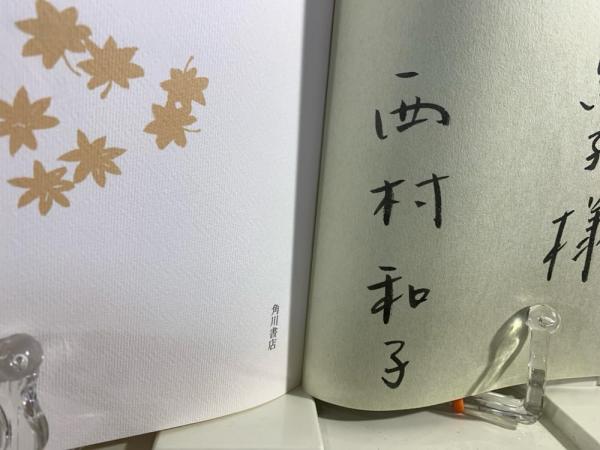 子様
西村和子
角川書店